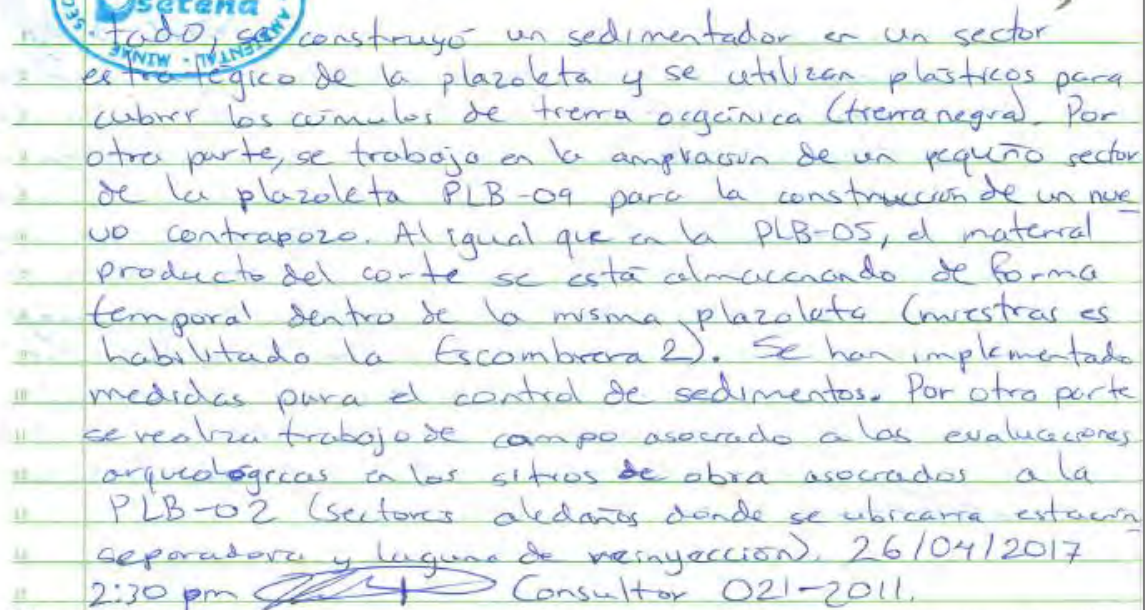 Setena
AMBIENTAL
MINAE
tado, se construyó un sedimentador en un sector
estratégico de la plazoleta y se utilizan plásticos para
cubrir los cúmulos de tierra orgánica (tierra negra). Por
otra parte, se trabaja en la ampliación de un pequeño sector
de la plazoleta PLB-09 para la construcción de un nue
vo contrapozo. Al igual que en la PLB-05, el material
producto del corte se está almacenando de forma
temporal dentro de la misma plazoleta (mientras es
habilitado la Escombrera 2). Se han implementado
medidas para el control de sedimentos. Por otra parte
se realiza trabajo de campo asociado a las evaluaciones
arqueológicas en los sitios de obra asociados a la
PLB-02 (sectores aledaños donde se ubicaría estación
separadora y laguna de reinyección). 26/04/2017
2:30 pm Consultor 021-2011.